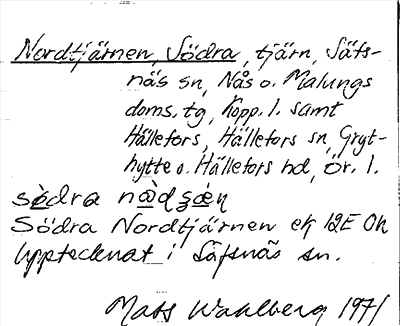 Nordtjärnen, Södra, tjärn, Säfs-
näs sn, Nås o. Malungs
doms. tg, Kopp. l. samt
Hällefors, Hällefors sn, Gryt-
hytte o. Hällefors hd, Ör. l.
södra
Södra Nordtjärnen ek 12E Oh
Upptecknat i Säfsnäs sn.
Mats Wahlberg 1971